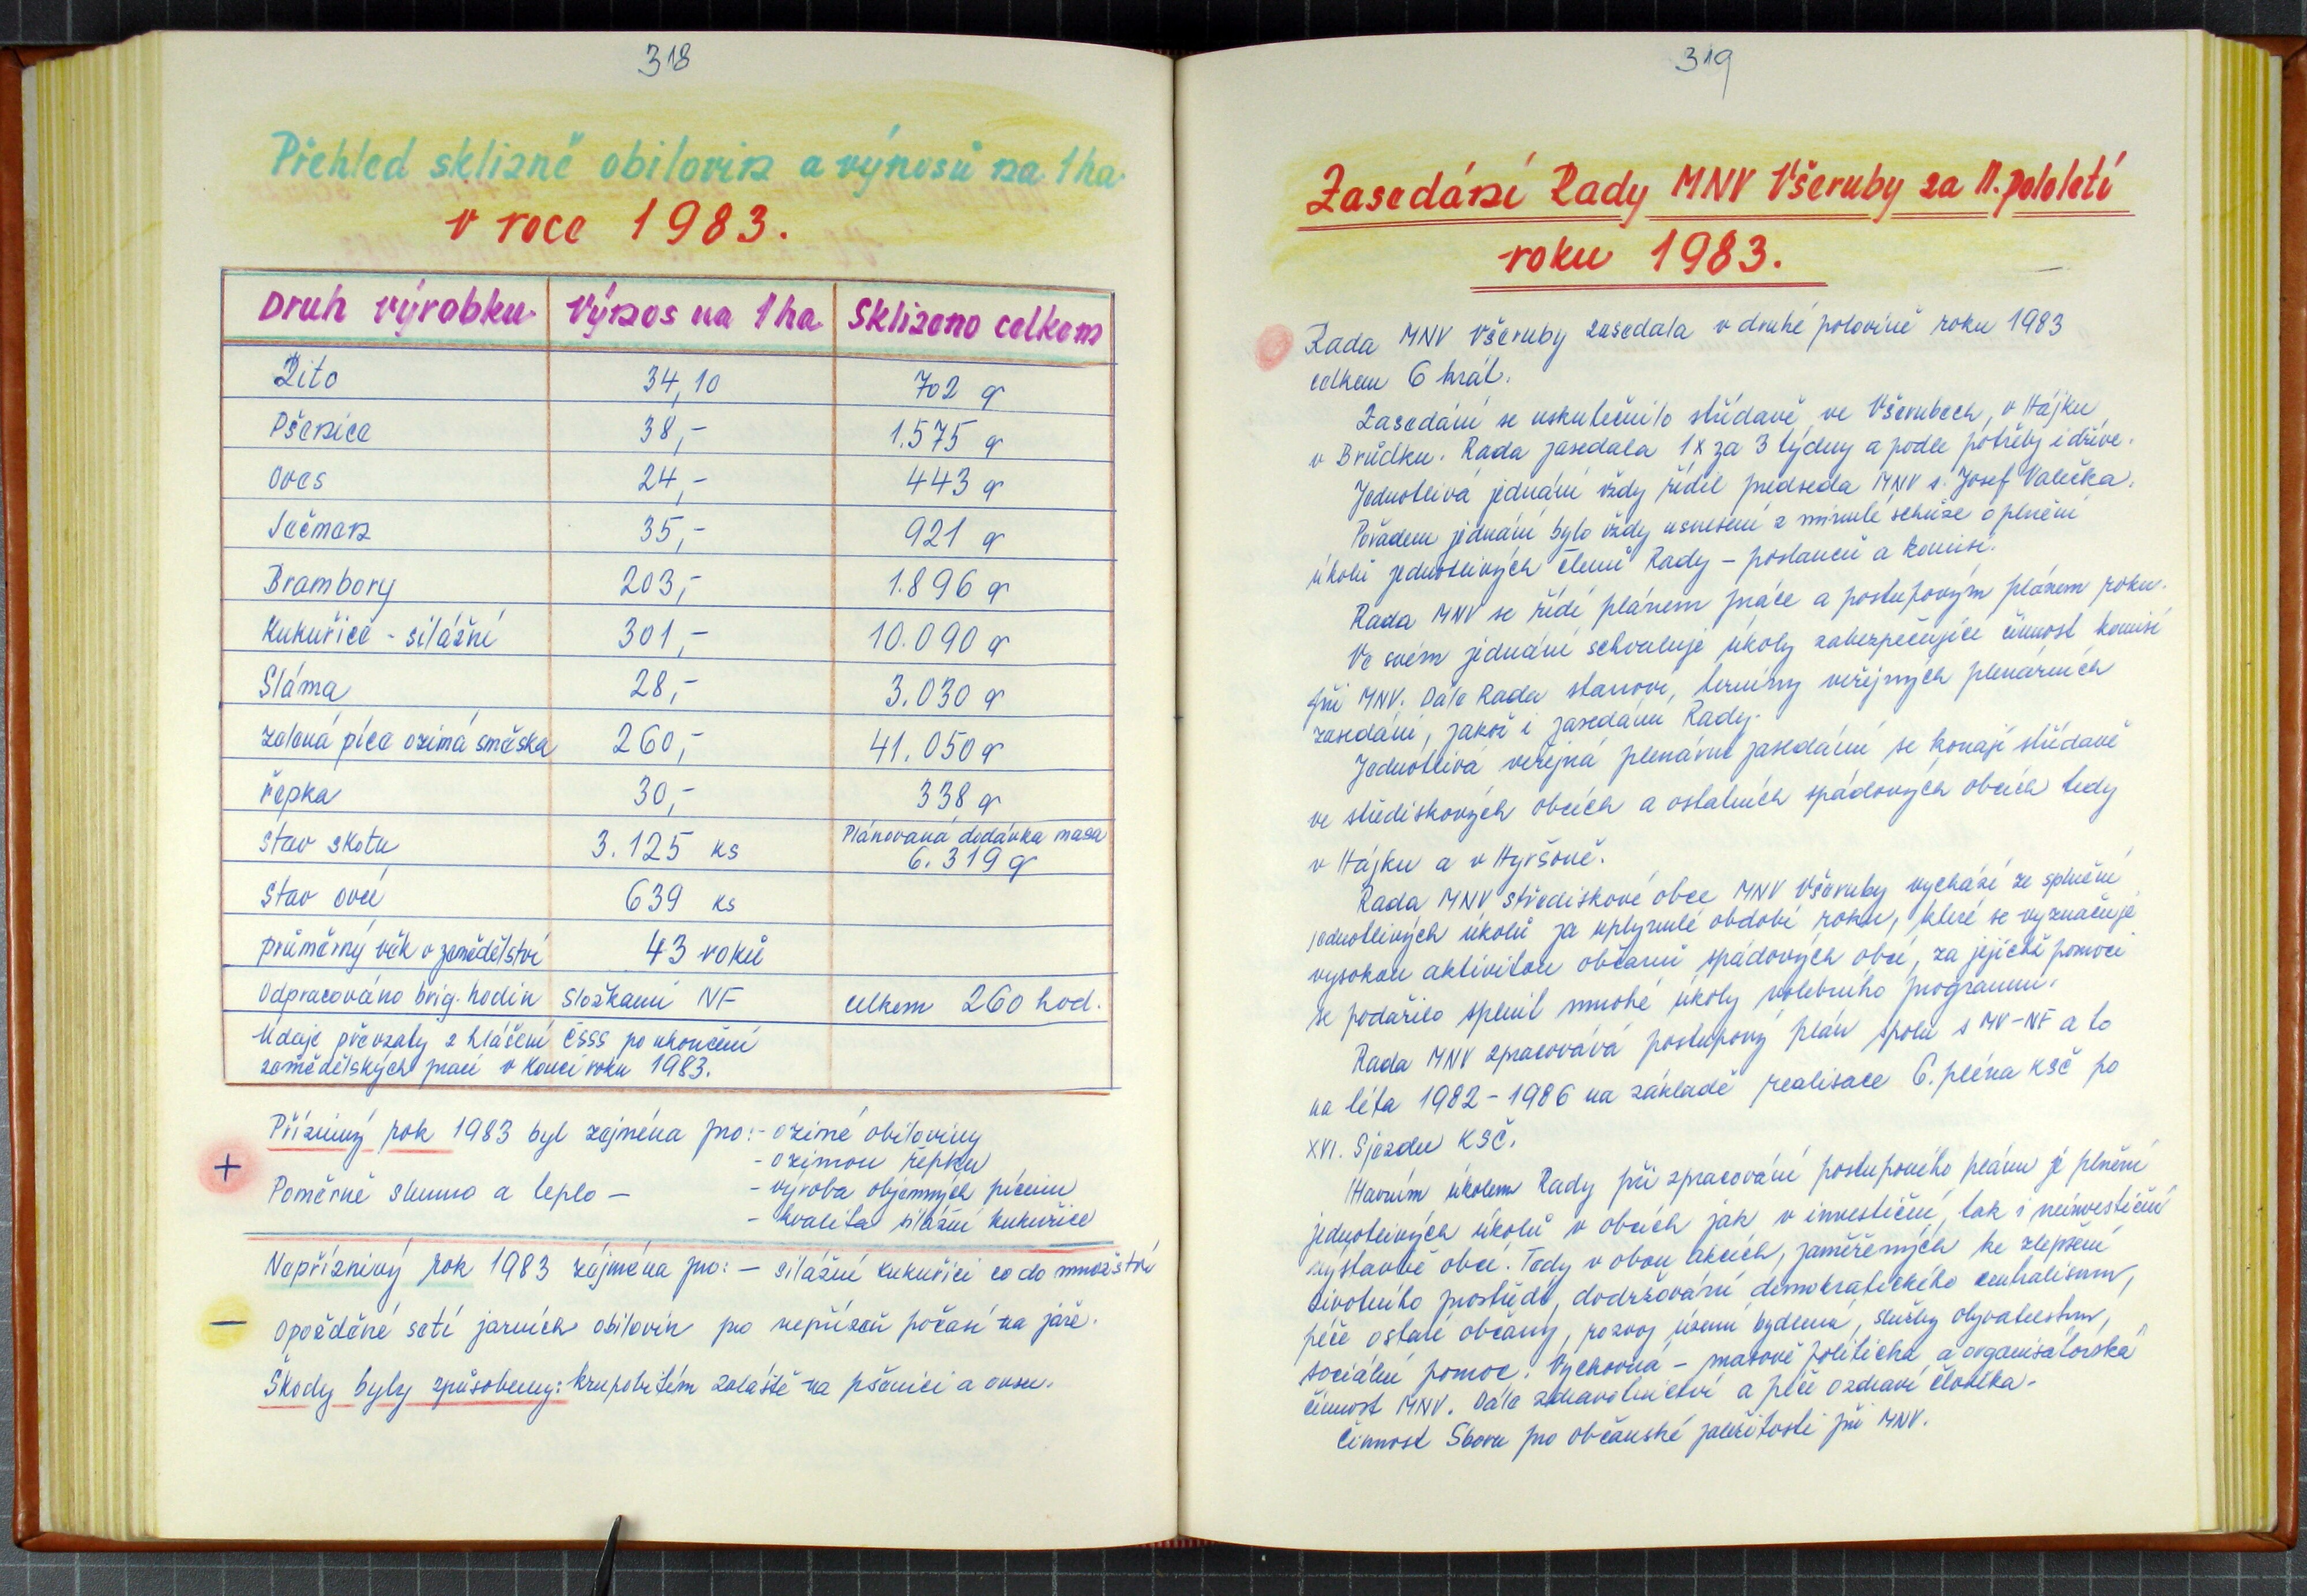 318
Přehled sklizně obilovin a výnosů na 1 ha
v roce 1983.
Druh výrobku Výnos na 1 ha Sklizeno celkem
Žito 34,10 702 q
Pšenice 38,- 1.575 q
Oves 24,- 443 q
Ječmen 35,- 921 q
Brambory 203,- 1.896 q
Kukuřice - silážní 301,- 10.090 q
Sláma 28,- 3.030 q
Zelená píce ozimá směska 260,- 41.050 q
řepka 30,- 338 q
Stav skotu 3.125 ks Plánovaná dodávka masa
6.319 q
Stav ovcí 639 ks
průměrný věk v zemědělství 43 roků
Odpracováno brig. hodin složkami NF celkem 260 hod.
Údaje převzaty z hlášení ČSSS po ukončení
zemědělských prací v konci roku 1983.
Příznivý rok 1983 byl zejména pro: - ozimé obiloviny
- ozimou řepku
+
Poměrně slunno a teplo - - výroba objemných pícnin
- kvalita silážní kukuřice
Nepříznivý rok 1983 zejména pro: - silážní kukuřici co do množství
- opožděné setí jarních obilovin pro nepřízeň počasí na jaře.
Škody byly způsobeny: krupobitím zvláště na pšenici a ovsu.
319
Zasedání Rady MNV Všeruby za II. pololetí
roku 1983.
Rada MNV Všeruby zasedala v druhé polovině roku 1983
celkem 6 krát.
Zasedání se uskutečnilo střídavě ve Všerubech, v Hájku
v Brůdku. Rada zasedala 1x za 3 týdny a podle potřeby i dříve.
Jednotlivá jednání vždy řídil předseda MNV s. Josef Valečka.
Pořadem jednání bylo vždy usnesení z minulé schůze o plnění
úkolů jednotlivých členů Rady - poslanců a komisí.
Rada MNV se řídí plánem práce a postupovým plánem roku.
Ve svém jednání schvaluje úkoly zabezpečující činnost komisí
při MNV. Dále Rada stanoví, termíny veřejných plenárních
zasedání, jakož i zasedání Rady.
Jednotlivá veřejná plenární zasedání se konají střídavě
ve střediskových obcích a ostatních spádových obcích tedy
v Hájku a v Hyršově.
Rada MNV střediskové obce MNV Všeruby vychází ze splnění
jednotlivých úkolů za uplynulé období roku, které se vyznačuje
vysokou aktivitou občanů spádových obcí, za jejichž pomoci
se podařilo splnit mnohé úkoly volebního programu.
Rada MNV zpracovává postupový plán spolu s MV-NF a to
na léta 1982-1986 na základě realisace 6. pléna KSČ po
XVI. Sjezdu KSČ.
Hlavním úkolem Rady při zpracování postupového plánu je plnění
jednotlivých úkolů v obcích jak v investiční, tak i neinvestiční
výstavbě obcí. Tedy v obou akcích, zaměřených ke zlepšení
životního prostředí, dodržování demokratického centralismu,
péče o staré občany, rozvoj území bydlení, služby obyvatelstvu,
sociální pomoc. Výchovná - masově politická a organisátorská
činnost MNV. Dále zdravotnictví a péče o zdraví člověka.
Činnost Sboru pro občanské záležitosti při MNV.